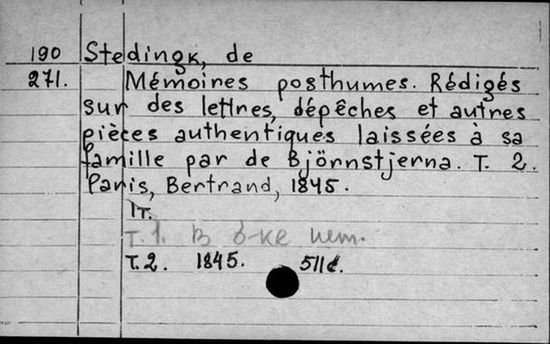 190 Stedingk, de
271. Mémoires posthumes. Rédigés
sur des lettres, dépêches et autres
pièces authentiques laissées à sa
famille par de Björnstjerna. T. 2.
Paris, Bertrand, 1845.
1т.
т. 1. В б-ке нет.
т. 2. 1845. 511 с.